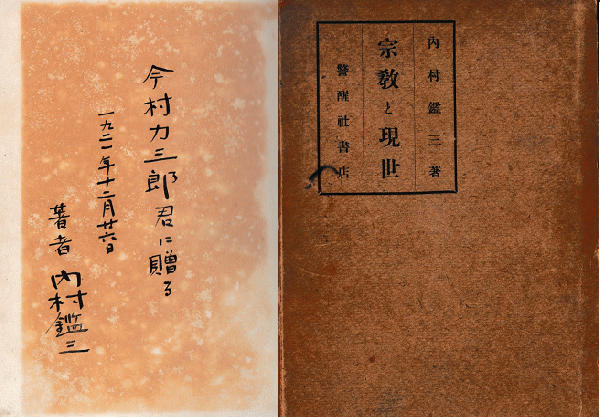 内村鑑三著
宗教と現世
警醒社書店
今村力三郎君に贈る
一九二一年十二月廿六日
著者 内村鑑三